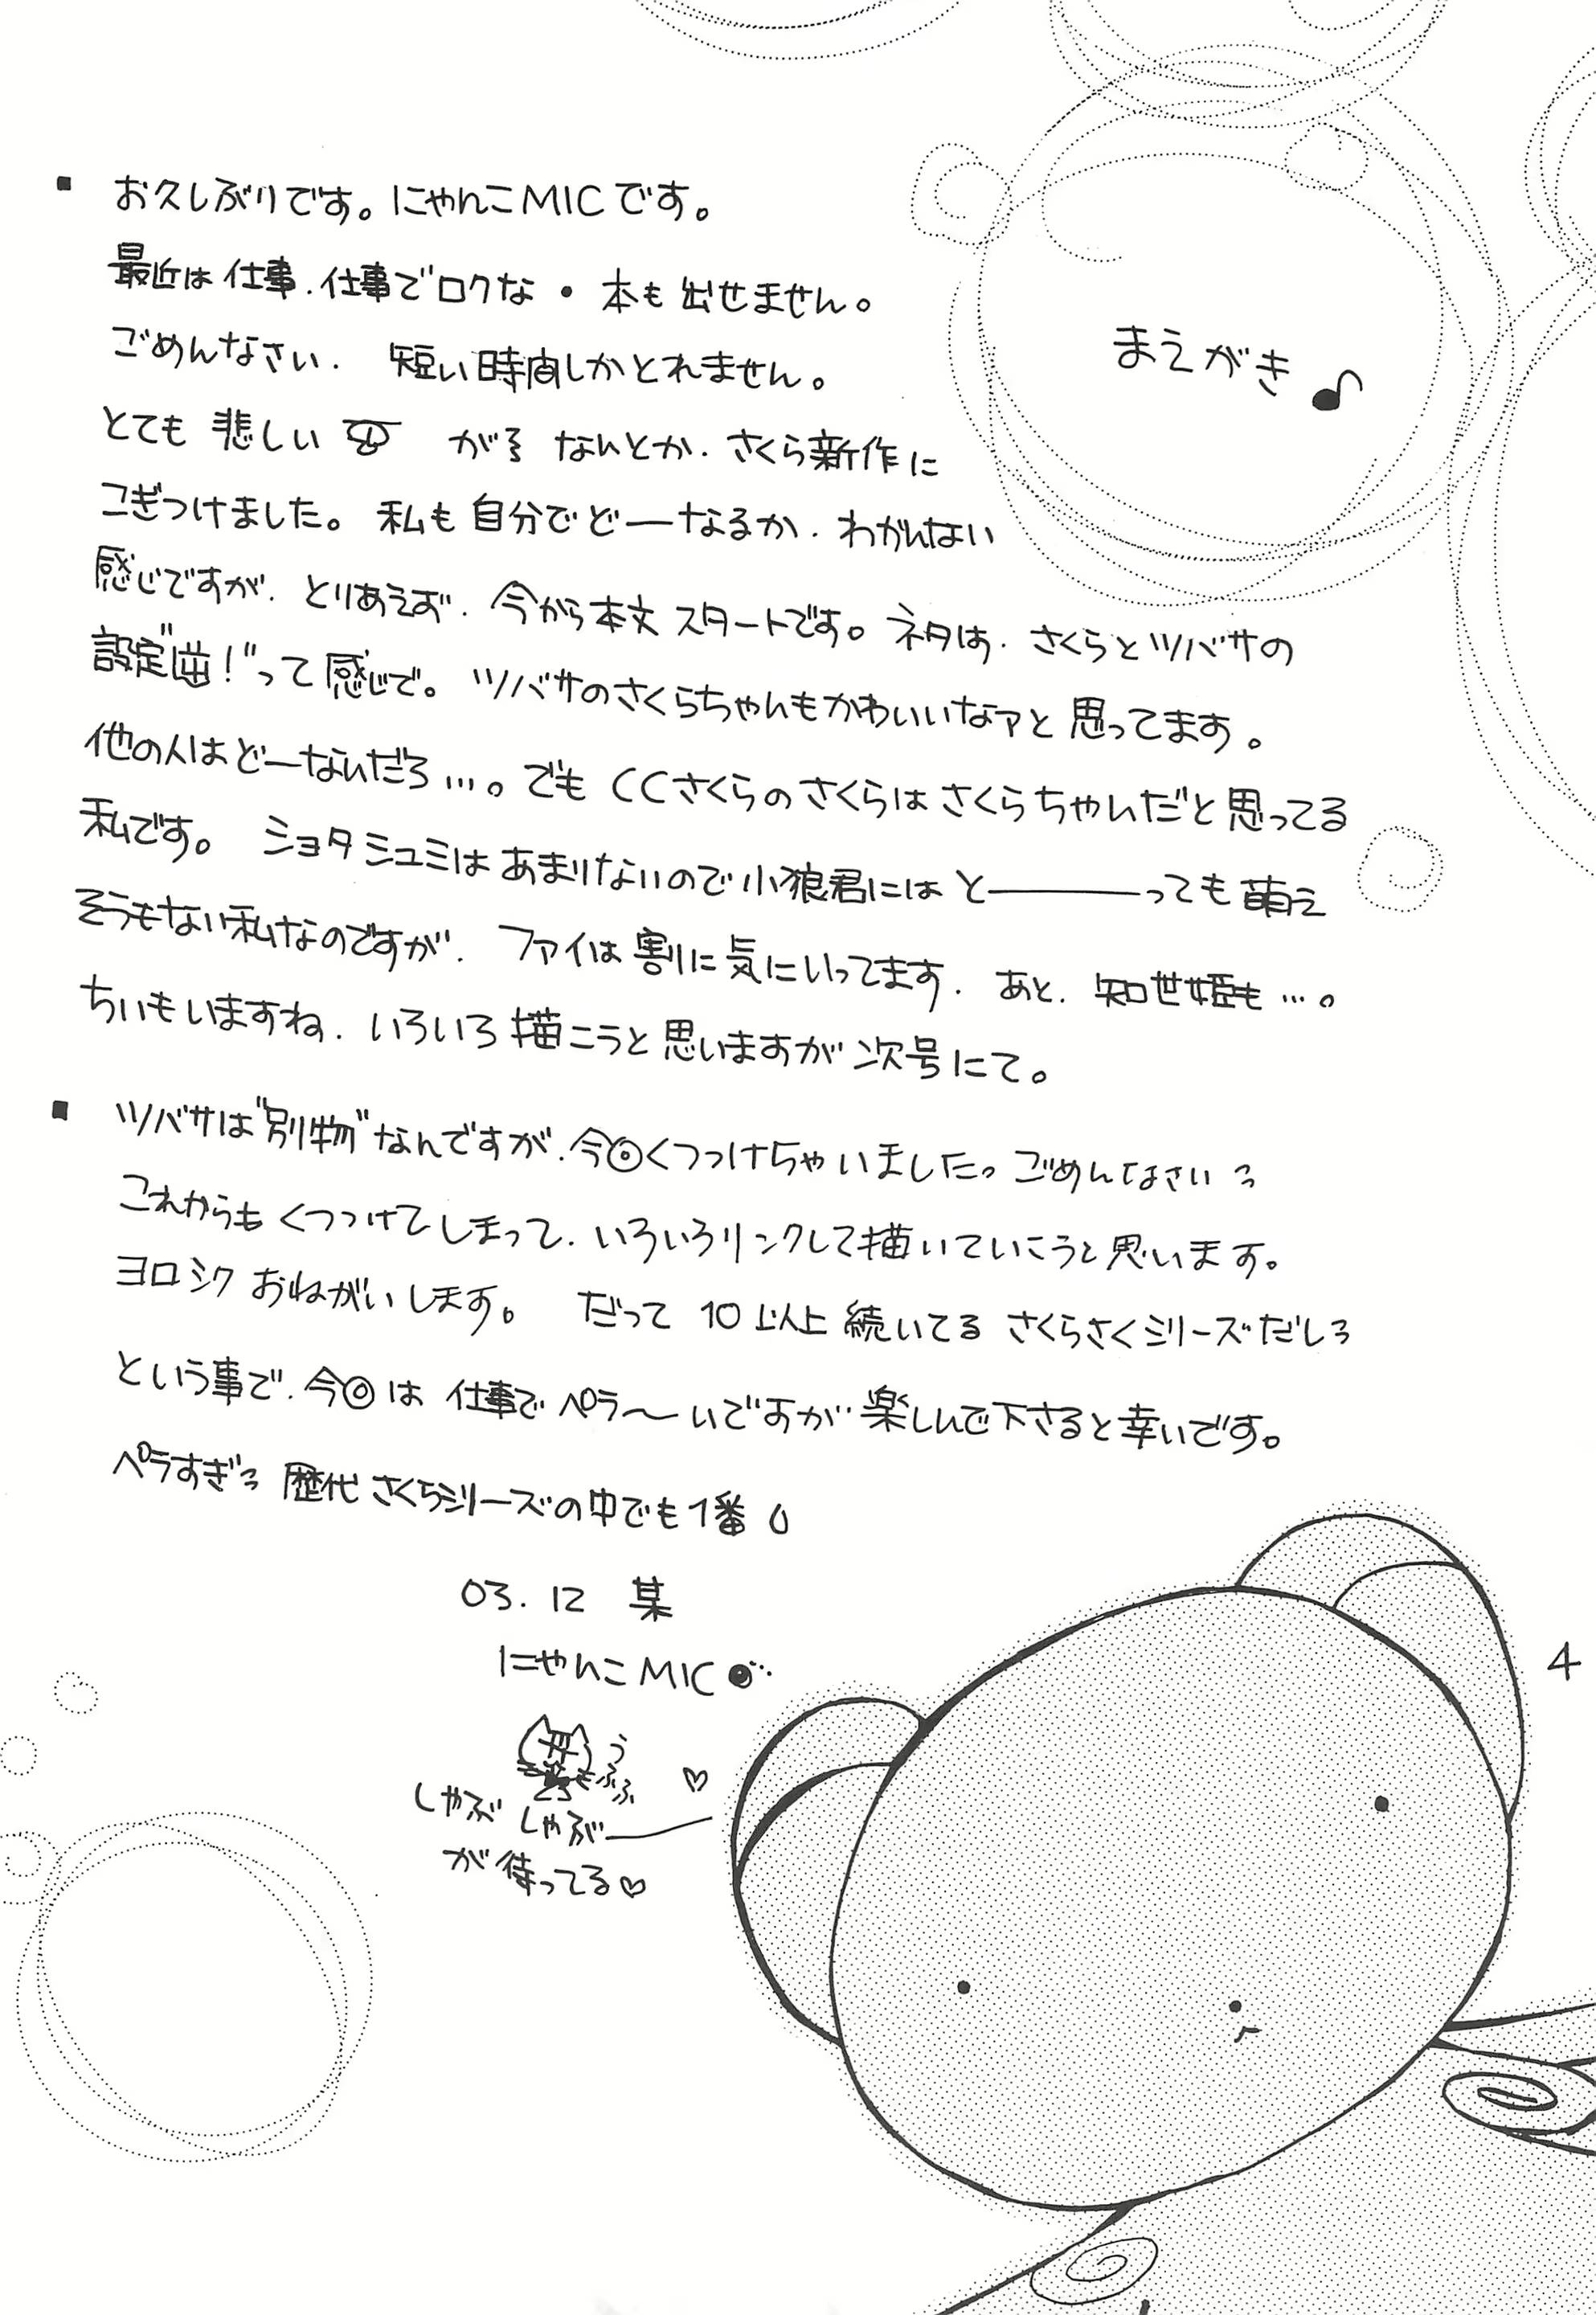 まえがき♪
■ お久しぶりです。にゃんこMICです。
最近は仕事.仕事でロクな・本も出せません。
ごめんなさい. 短い時間しかとれません。
とても悲しい が なんとか.さくら新作に
こぎつけました。私も自分でどーなるか.わかんない
感じですが.とりあえず.今から本文スタートです。ネタは.さくらとツバサの
設定"逆!"って感じで。ツバサのさくらちゃんもかわいいなァと思ってます。
他の人はどーなんだろ…。でもCCさくらのさくらはさくらちゃんだと思ってる
私です。 ショタシュミはあまりないので小狼君にはと―――っても萌え
そうもない私なのですが. ファイは割に気にいってます. あと.知世姫も…。
ちいもいますね.いろいろ描こうと思いますが次号にて。
■ ツバサは"別物"なんですが.今回くっつけちゃいましたっ ごめんなさいろ
これからもくっつけてしまって.いろいろリンクして描いていこうと思います。
ヨロシクおねがいします。 だって10以上続いてるさくらさくシリーズだしろ
という事で.今回は仕事でペラ〜いですが楽しんで下さると幸いです。
ペラすぎろ 歴代さくらシリーズの中でも1番
03.12 某
にゃんこMIC
うふふ
♡
しゃぶしゃぶ―
が待ってる♡
4